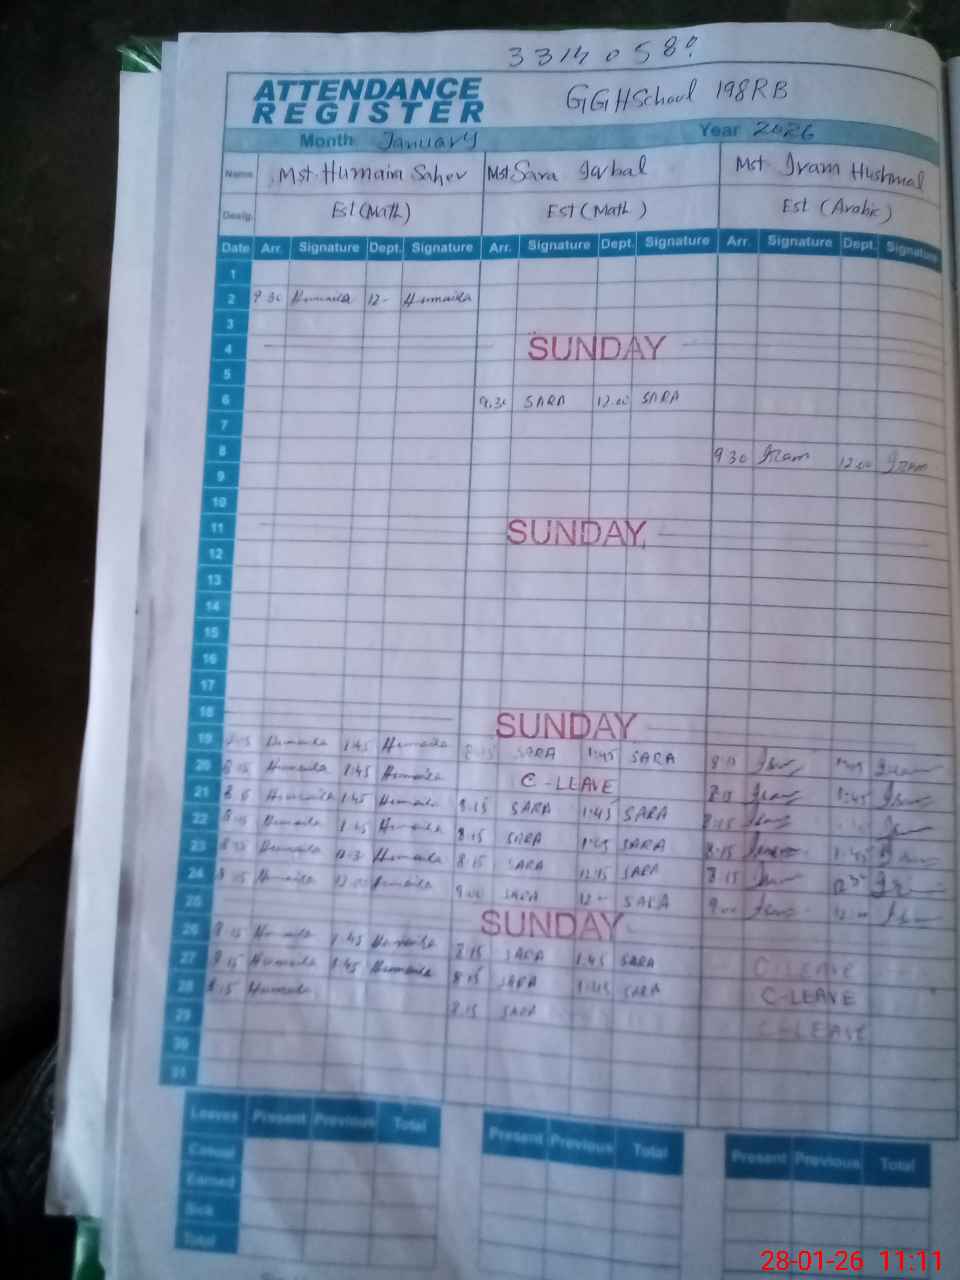 3314058?
ATTENDANCE
REGISTER
GGHSchool 198RB
Month January Year 2026
Name Mst. Humaira Saher Mst Sara Iqbal Mst Iram Hushmal
Desig. Est (Math) Est (Math) Est (Arabic)
Date Arr. Signature Dept. Signature Arr. Signature Dept. Signature Arr. Signature Dept. Signature
1
2 9 30 Humaila 12- Humaila
3
4 SUNDAY
5
6 9.30 SARA 12.00 SARA
7
8 9 30 Iram 12.00 Iram
9
10
11 SUNDAY
12
13
14
15
16
17
18 SUNDAY
19 8.15 Humaila 1:45 Humaila 8.15 SARA 1:45 SARA
20 8.15 Humaila 1:45 Humaila C-LEAVE 1:45
21 Humaila 1:45 Humaila 8.15 SARA 1:45 SARA 8.15
22 8.15 Humaila 1:45 Humaila 8.15 SARA 1:45 SARA 8.15 1:45
23 Humaila Humaila 8.15 SARA 12.15 SARA 8.15
24 Humaila 12.00 Humaila 9.00 SARA 12- SARA 9.00 12.00
25 SUNDAY
26 8.15 Humaila 1.45 Humaila 8.15 SARA 1:45 SARA C-LEAVE
27 8.15 Humaila 1:45 Humaila 8.15 SARA 1:45 SARA C-LEAVE
28 8.15 Humaila 8.15 SARA C-LEAVE
29
30
31
Leaves Present Previous Total Present Previous Total Present Previous Total
Casual
Earned
Sick
Total
28-01-26 11:11